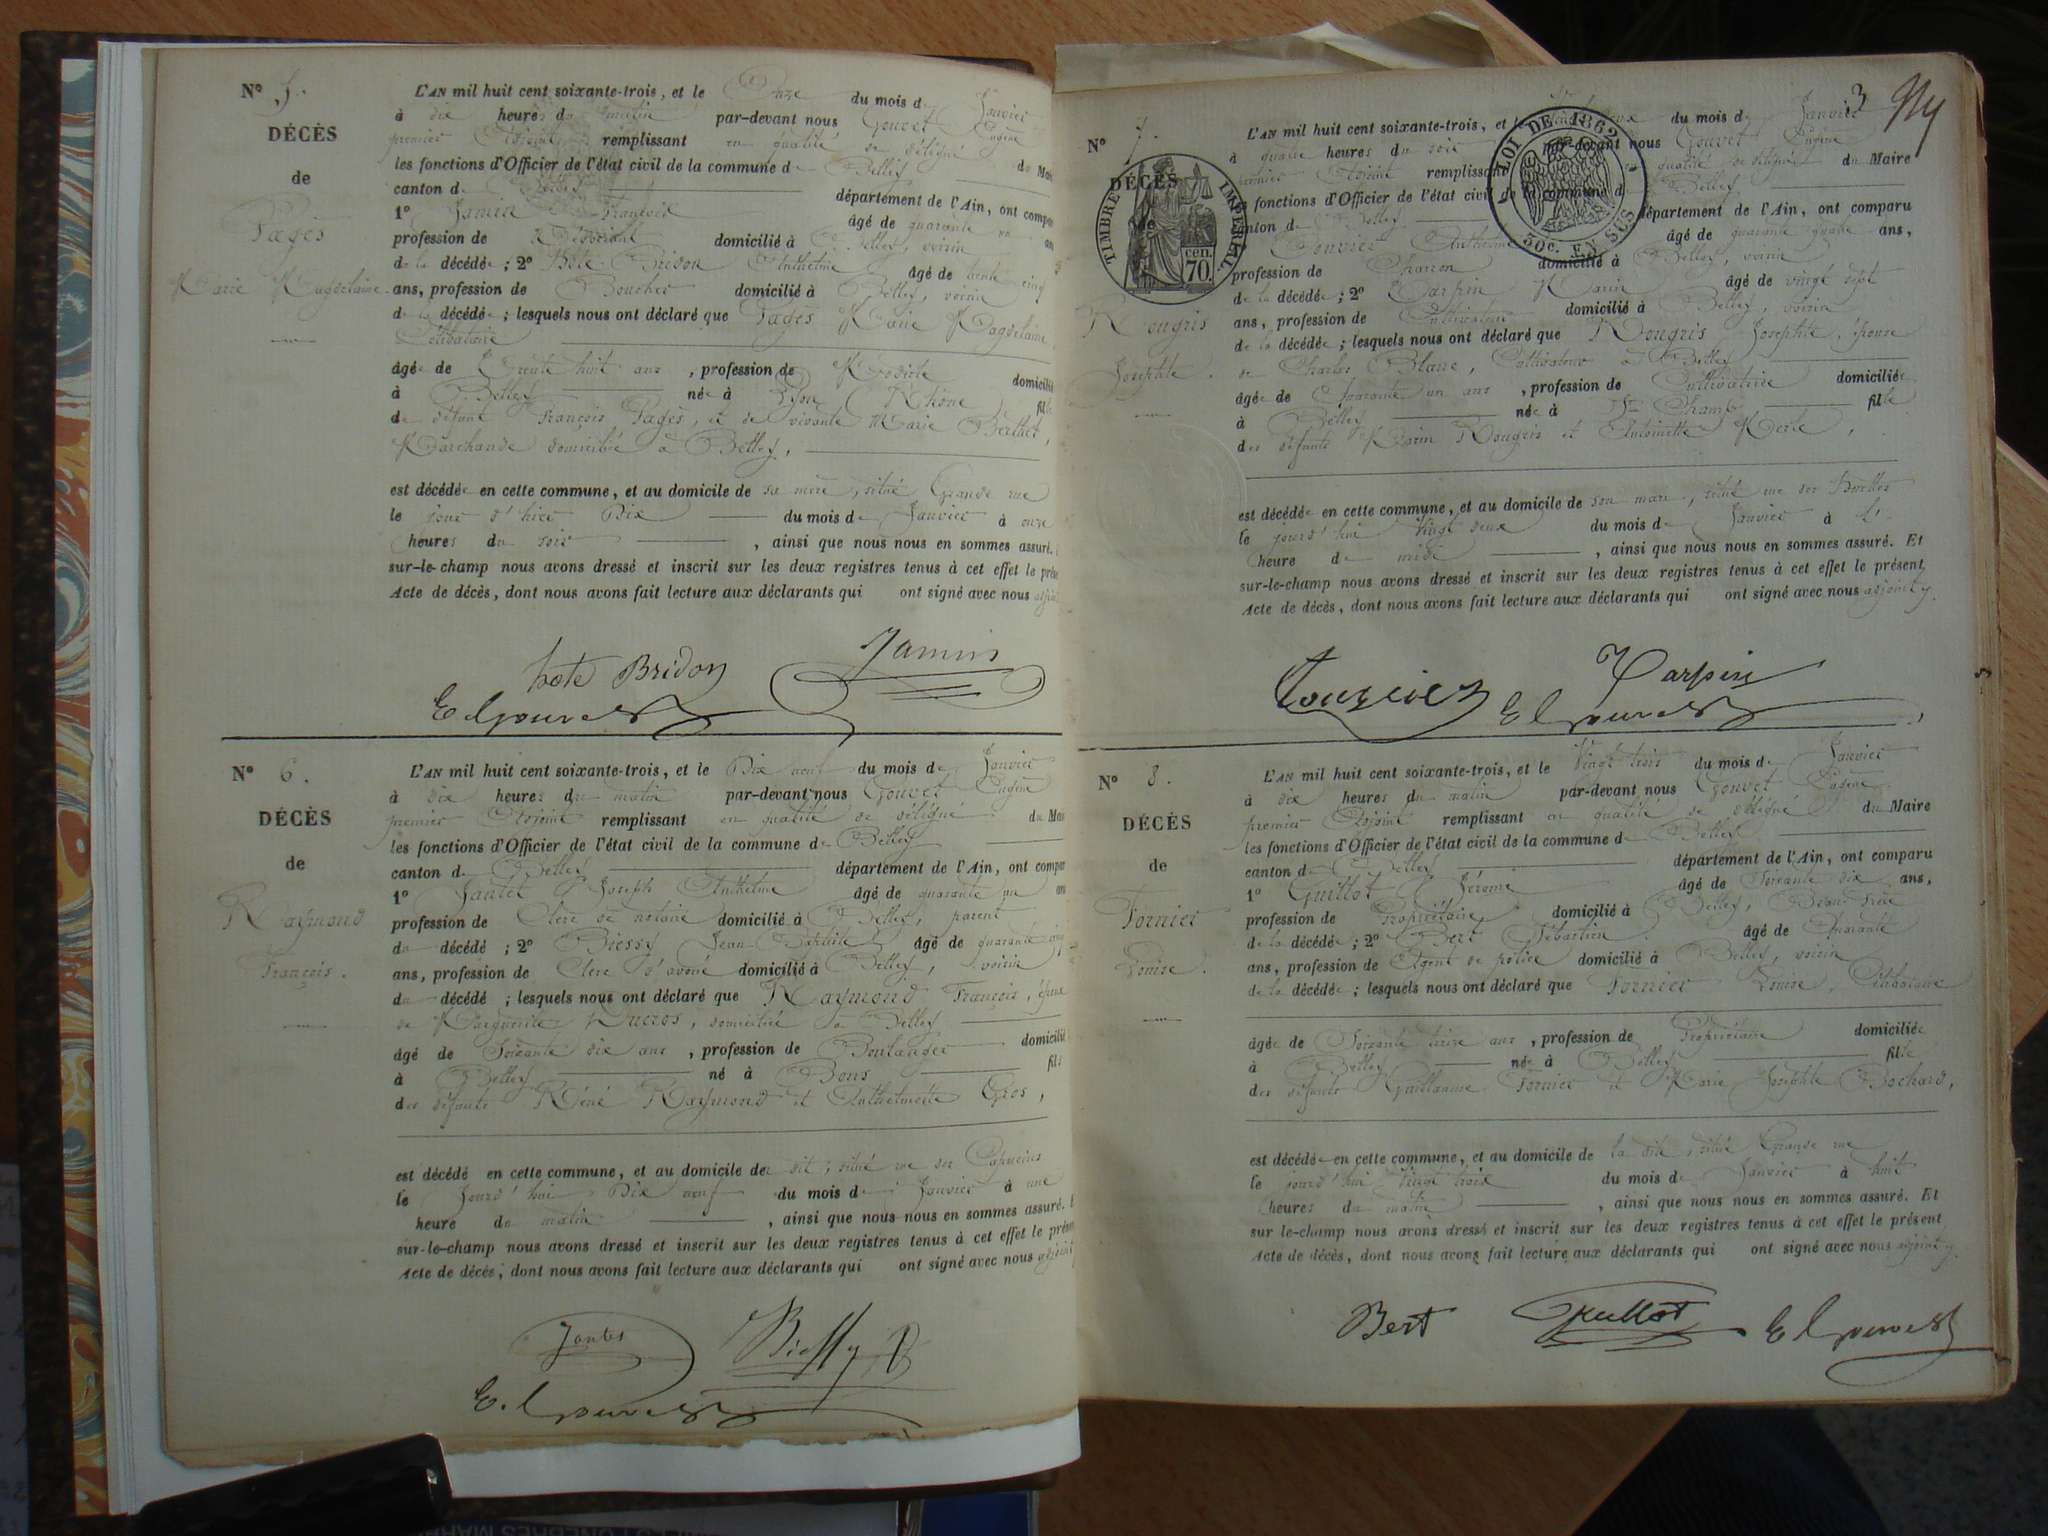 N° 5.
DÉCÈS
de
Pagès
Marie Magdelaine.
L'AN mil huit cent soixante-trois, et le Onze du mois de Janvier
à dix heures du matin par-devant nous Gouvet Eugène
premier Adjoint remplissant en qualité de délégué du Mai
les fonctions d'Officier de l'état civil de la commune de Belley
canton de Belley département de l'Ain, ont compar
1° Jamin François âgé de quarante un an
profession de domicilié à Belley, voisin
de la décédée ; 2° Hote Bridon Anthelme âgé de trente cinq
ans, profession de Boucher domicilié à Belley, voisin
de la décédée ; lesquels nous ont déclaré que Pagès Marie Magdelaine,
Célibataire
âgée de Trente huit ans , profession de Modiste domicilié
à Belley née à Lyon (Rhône) fille
de défunt François Pagès, et de vivante Marie Berthet,
Marchande domiciliée à Belley,
est décédée en cette commune, et au domicile de sa mère, situé Grande rue
le jour d'hier Dix du mois de Janvier à onze
heures du soir , ainsi que nous nous en sommes assuré.
sur-le-champ nous avons dressé et inscrit sur les deux registres tenus à cet effet le prése
Acte de décès, dont nous avons fait lecture aux déclarants qui ont signé avec nous adjoint
hote Bridon Jamin
E Gouvet
N° 6.
DÉCÈS
de
Raymond
François.
L'AN mil huit cent soixante-trois, et le Dix neuf du mois de Janvier
à dix heures du matin par-devant nous Gouvet Eugène
premier Adjoint remplissant en qualité de délégué du Mai
les fonctions d'Officier de l'état civil de la commune de Belley
canton de Belley département de l'Ain, ont compar
1° Jantet Joseph Anthelme âgé de quarante un an
profession de Clerc de notaire domicilié à Belley, parent
du décédé ; 2° Biessy Jean Baptiste âgé de quarante cinq
ans, profession de Clerc d'avoué domicilié à Belley, voisin
du décédé ; lesquels nous ont déclaré que Raymond François, époux
de Marguerite Ducros, domiciliée à Belley
âgé de Soixante dix ans , profession de Boulanger domicilié
à Belley né à Bons fils
des défunts Réné Raymond et Anthelmette Gros,
est décédé en cette commune, et au domicile de dit, situé rue des Capucins
le jourd'hui Dix neuf du mois de Janvier à une
heure de matin , ainsi que nous nous en sommes assuré. E
sur-le-champ nous avons dressé et inscrit sur les deux registres tenus à cet effet le présen
Acte de décès, dont nous avons fait lecture aux déclarants qui ont signé avec nous adjoint
Jantet Biessy
E. Gouvet
3
N° 7.
DÉCÈS
de
TIMBRE IMPÉRIAL
70 cen.
LOI DE 1862
30c. EN SUS
Rougris
Josephte.
L'AN mil huit cent soixante-trois, et le Vingt deux du mois de Janvier
à quatre heures du soir par-devant nous Gouvet Eugène
premier Adjoint remplissant en qualité de délégué du Maire
les fonctions d'Officier de l'état civil de la commune de Belley
canton de Belley département de l'Ain, ont comparu
Anthelme âgé de quarante quatre ans,
profession de Charron domicilié à Belley, voisin
de la décédée ; 2° Tarpin Marin âgé de vingt sept
ans, profession de Cultivateur domicilié à Belley, voisin
de la décédée ; lesquels nous ont déclaré que Rougris Josephte, épouse
de Charles Blanc, Cultivateur à Belley
âgée de Quarante un ans , profession de Cultivatrice domiciliée
à Belley née à St Champ fille
des défunts Marin Rougris et Antoinette Merle,
est décédée en cette commune, et au domicile de son mari, situé rue des Barelles
le jourd'hui Vingt deux du mois de Janvier à
heure de midi , ainsi que nous nous en sommes assuré. Et
sur-le-champ nous avons dressé et inscrit sur les deux registres tenus à cet effet le présent
Acte de décès, dont nous avons fait lecture aux déclarants qui ont signé avec nous adjoint
Tarpin
E Gouvet
N° 8.
DÉCÈS
de
Fornier
Louise.
L'AN mil huit cent soixante-trois, et le Vingt trois du mois de Janvier
à dix heures du matin par-devant nous Gouvet Eugène
premier Adjoint remplissant en qualité de délégué du Maire
les fonctions d'Officier de l'état civil de la commune de Belley
canton de Belley département de l'Ain, ont comparu
1° Guillot Jérome âgé de Soixante dix ans,
profession de Propriétaire domicilié à Belley, Beau frère
de la décédée ; 2° Bert Sébastien âgé de Quarante
ans, profession de Agent de police domicilié à Belley, voisin
de la décédée ; lesquels nous ont déclaré que Fornier Louise, Célibataire
âgée de Soixante treize ans , profession de Propriétaire domiciliée
à Belley née à Belley fille
des défunts Guillaume Fornier et Marie Josephte Bochard,
est décédée en cette commune, et au domicile de la dite, situé Grande rue
le jourd'hui Vingt trois du mois de Janvier à huit
heures du matin , ainsi que nous nous en sommes assuré. Et
sur le-champ nous avons dressé et inscrit sur les deux registres tenus à cet effet le présent
Acte de décès, dont nous avons fait lecture aux déclarants qui ont signé avec nous adjoint
Bert Guillot E Gouvet